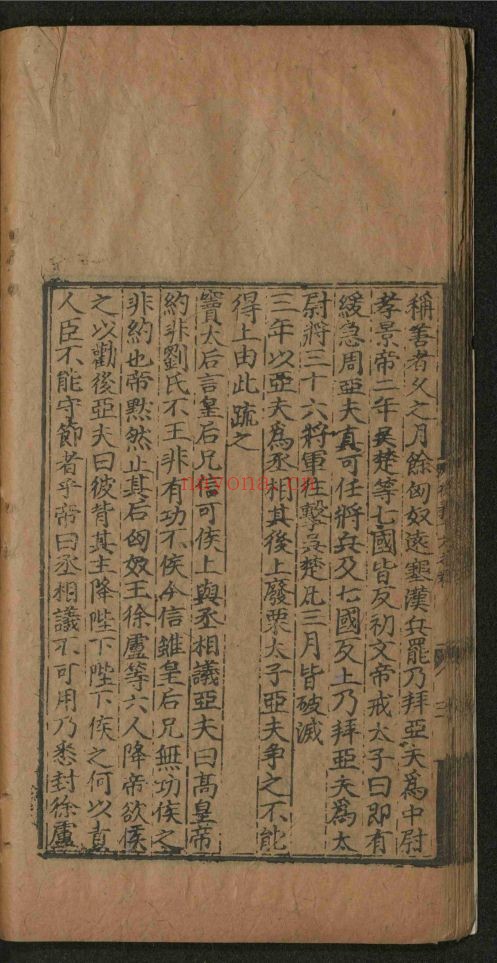 稱善者久之月餘匈奴遠塞漢兵罷乃拜亞夫爲中尉
孝景帝二年吳楚等七國皆反初文帝戒太子曰即有
緩急周亞夫真可任將兵及七國反上乃拜亞夫爲太
尉將三十六將軍往擊吳楚凡三月皆破滅
三年以亞夫爲丞相其後上廢栗太子亞夫爭之不能
得上由此疏之
竇太后言皇后兄信可侯上與丞相議亞夫曰高皇帝
約非劉氏不王非有功不侯今信雖皇后兄無功侯之
非約也帝黙然止其后匈奴王徐盧等六人降帝欲侯
之以勸後亞夫曰彼背其主降陛下陛下侯之何以責
人臣不能守節者乎帝曰丞相議不可用乃悉封徐盧
nayona.cn